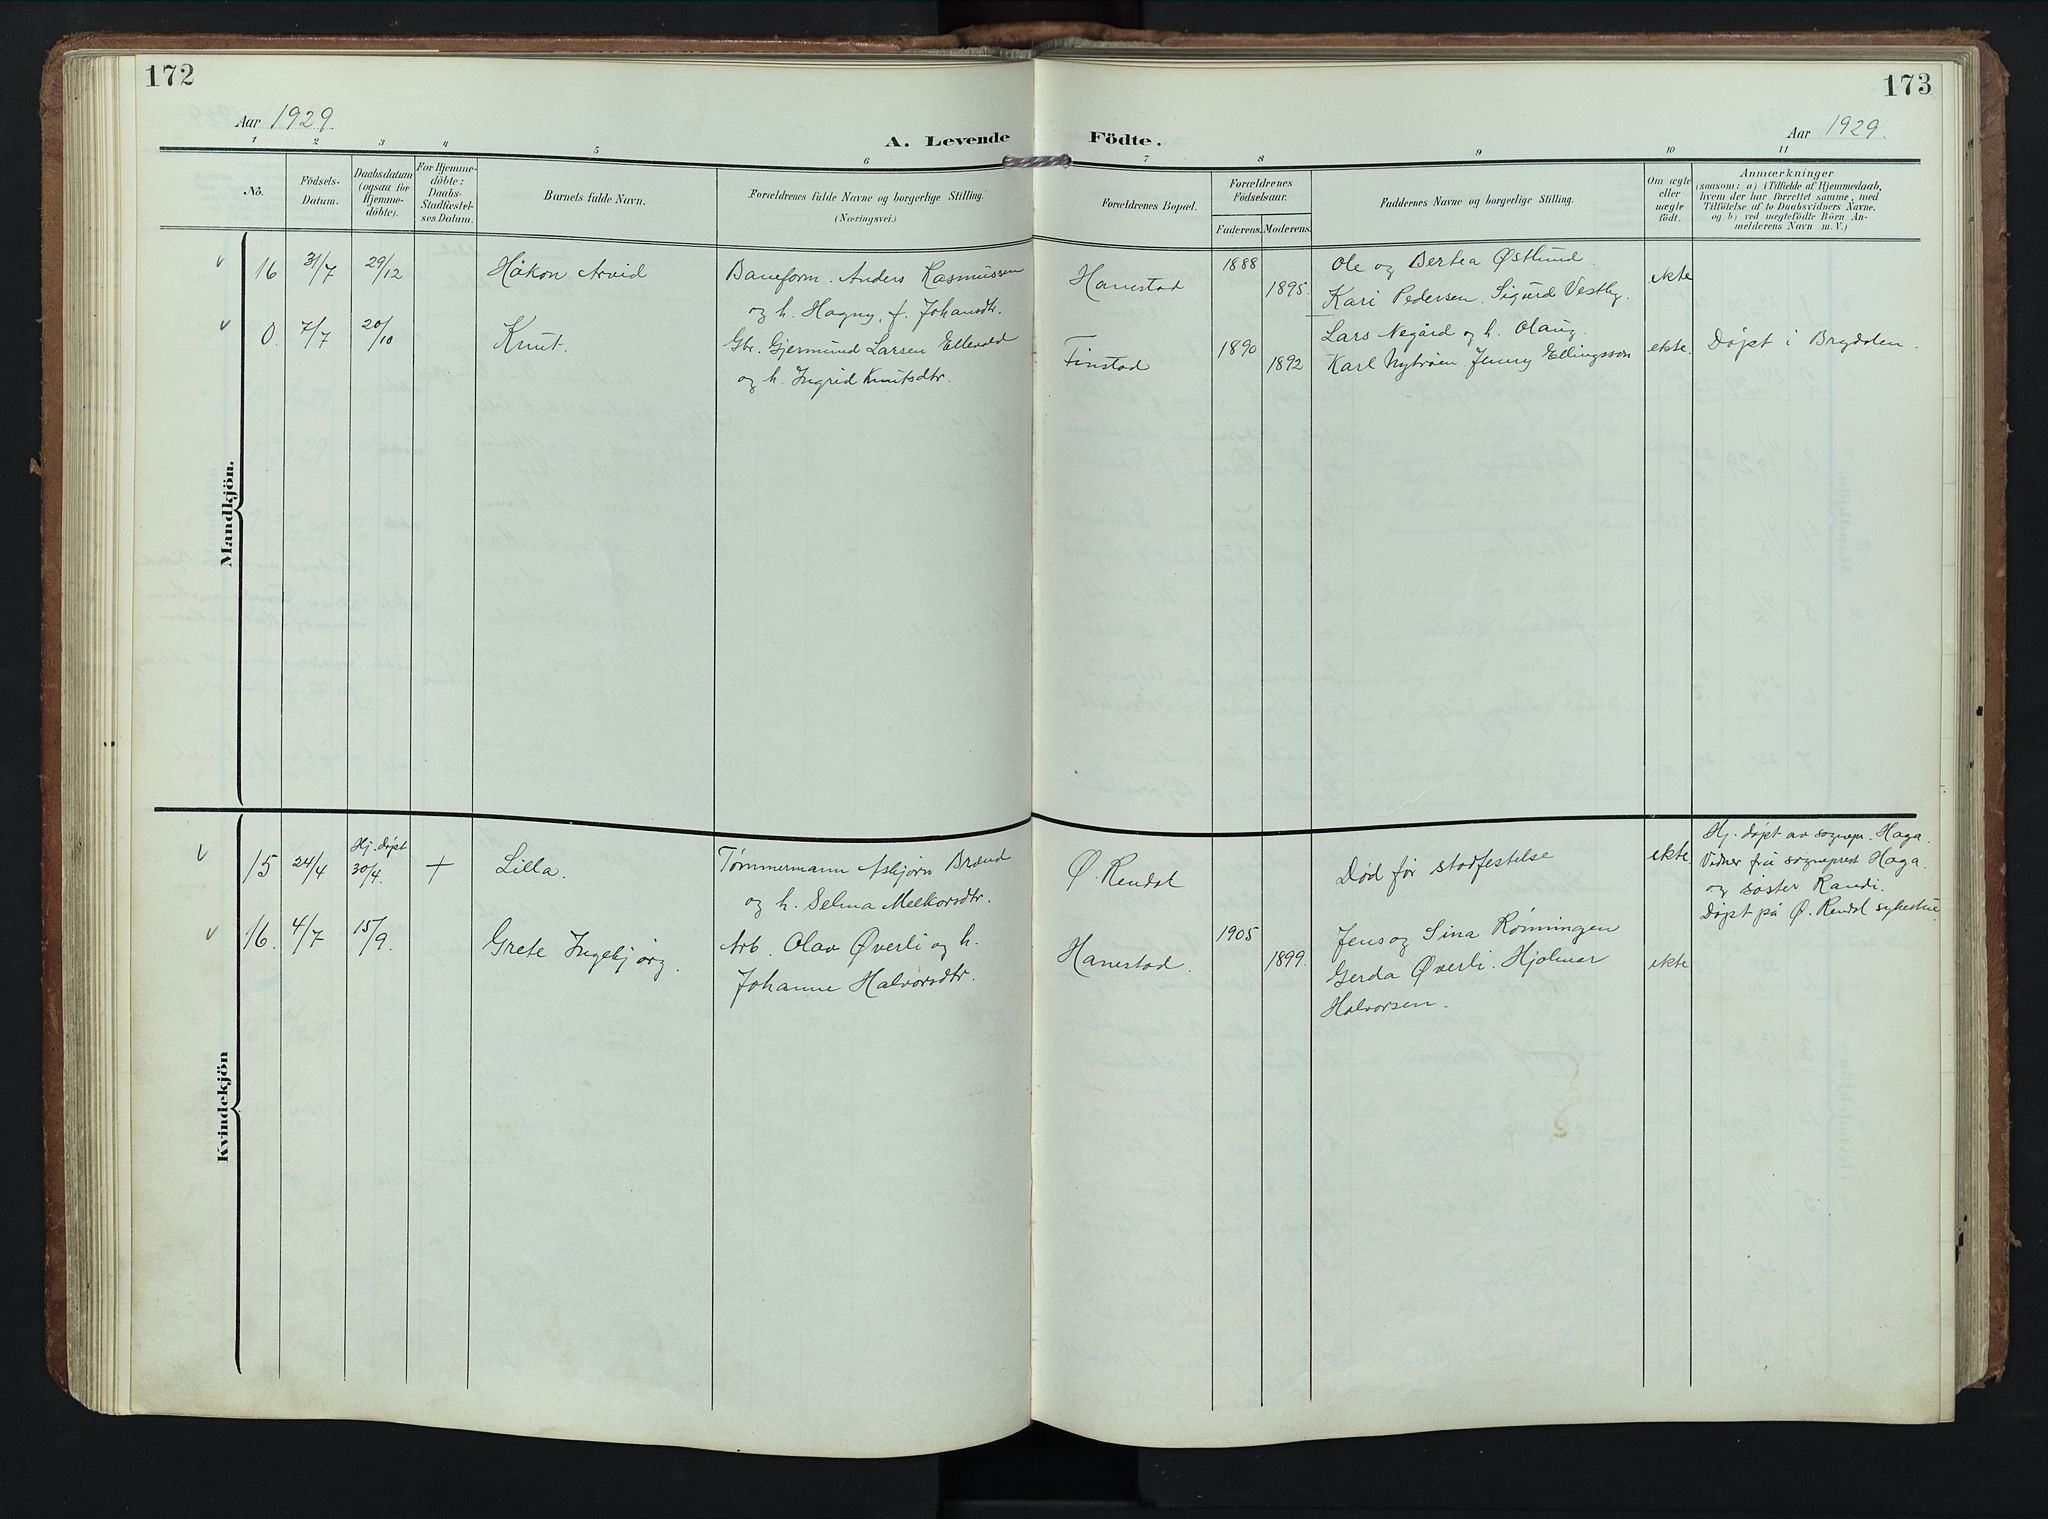 172
173
Aar 1929
A. Levende
Födte.
Aar 1929.
1 2 3 4 5 6 7 8 9 10 11
No.
Födsels-
Datum.
Daabsdatum
(ogsaa for
Hjemme-
döbte).
For Hjemme-
döbte:
Daabs-
Stadfæstel-
ses Datum.
Barnets fulde Navn.
Forældrenes fulde Navne og borgerlige Stilling.
(Næringsvei.)
Forældrenes Bopæl.
Forældrenes
Födselsaar.
Faderens. Moderens.
Faddernes Navne og borgerlige Stilling.
Om ægte
eller
uægte
födt.
Anmærkninger
(saasom: a) i Tilfælde af Hjemmedaab,
hvem der har forrettet samme, med
Tilföielse af to Daabsvidners Navne,
og b) ved uægtefödte Börn An-
melderens Navn m. V.)
Mandkjön.
16 31/7 29/12 Håkon Arvid
Baneform. Anders Rasmussen
og h. Hagny, f. Johansdtr.
Hanestad
1888
1895.
Ole og Bertea Østlund.
Kari Pedersen. Sigurd Vestby.
ekte
0. 7/7 20/10 Knut.
Gbr. Gjermund Larsen Ellevold
og h. Ingrid Knutsdtr.
Finstad
1890
1892
Lars Negård og h. Olaug.
Karl Nytrøen. Jenny Ellingsson
ekte.
Døpt i Brydalen.
Kvindekjön
15 24/4
Hj. døpt
30/4.
+
Lilla.
Tømmermann Asbjørn Brænd
og h. Selma Melkorsdtr.
Ø. Rendal
Død før stadfestelse
ekte
Hj. døpt av sognepr. Haga.
Vidner fru sogneprest Haga
og søster Randi.
Døpt på Ø. Rendal sykestue
16. 4/7 15/9.
Grete Ingebjørg.
Arb. Olav Øverli og h.
Johanne Halvorsdtr.
Hanestad.
1905
1899.
Jens og Sina Rønningen
Gerda Øverli. Hjalmar
Halvorsen.
ekte